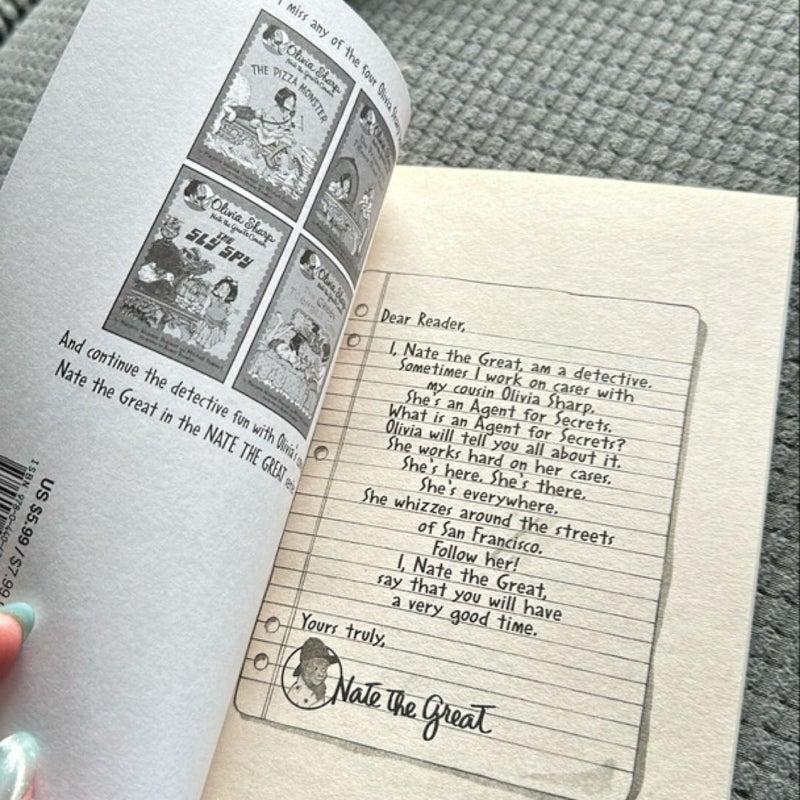 I miss any of the four Olivia Sharp
Olivia Sharp
Nate the Great's Cousin
THE PIZZA MONSTER
Olivia Sharp
Olivia Sharp
Nate the Great's Cousin
THE
SLY SPY
Olivia Sharp
And continue the detective fun with Olivia's
Nate the Great in the NATE THE GREAT
ISBN 978-0-440-4
US $5.99 / $7.99
Dear Reader,
I, Nate the Great, am a detective.
Sometimes I work on cases with
my cousin Olivia Sharp.
She's an Agent for Secrets.
What is an Agent for Secrets?
Olivia will tell you all about it.
She works hard on her cases.
She's here. She's there.
She's everywhere.
She whizzes around the streets
of San Francisco.
Follow her!
I, Nate the Great,
say that you will have
a very good time.
Yours truly,
Nate the Great